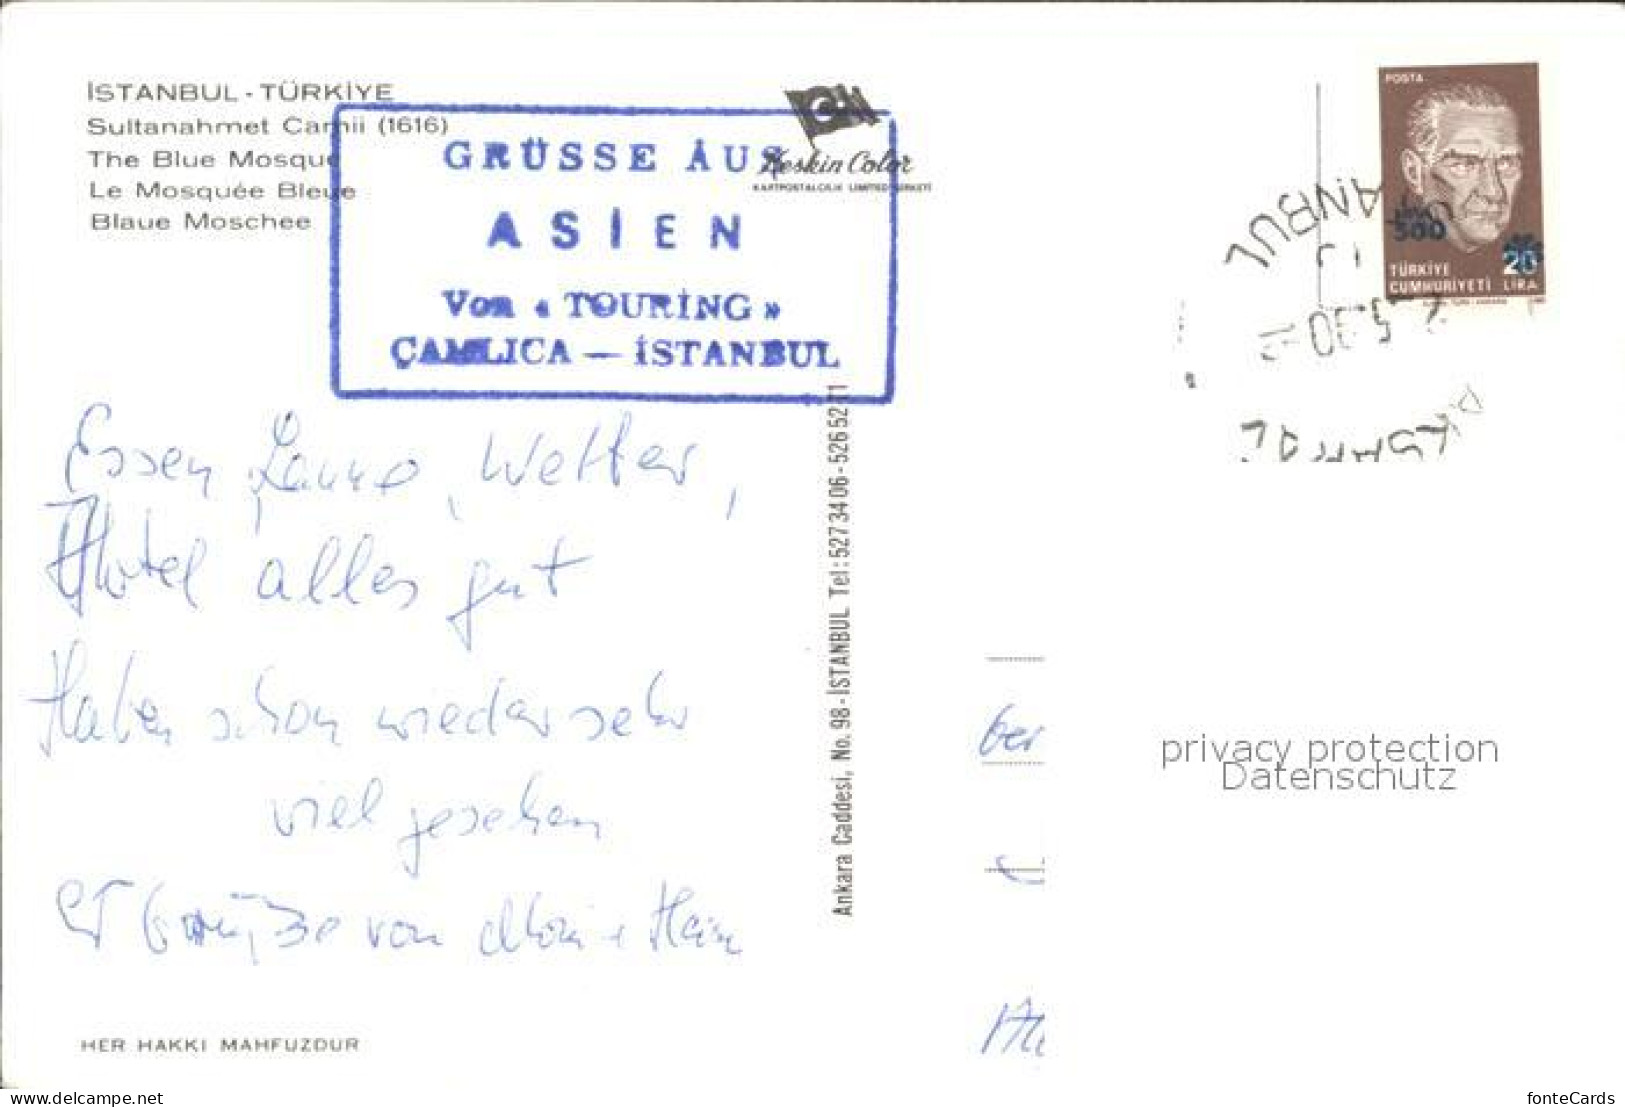 İSTANBUL - TÜRKİYE
Sultanahmet Camii (1616)
The Blue Mosque
Le Mosquée Bleue
Blaue Moschee
GRÜSSE AUS
ASİEN
Von « TOURİNG »
ÇAMLICA — İSTANBUL
Keskin Color
KARTPOSTALCILIK LIMITED ŞIRKETI
POSTA
500
20
TÜRKİYE
CUMHURİYETİ LİRA
ANBUL
Essen, Laune, Wetter,
Hotel alles gut
Haben schon wieder sehr
viel gesehen
Grüße von
Ankara Caddesi, No. 98 - İSTANBUL Tel: 527 34 06 - 526 52 71
ber
privacy protection
Datenschutz
HER HAKKI MAHFUZDUR
www.entercards.eu
fonteCards